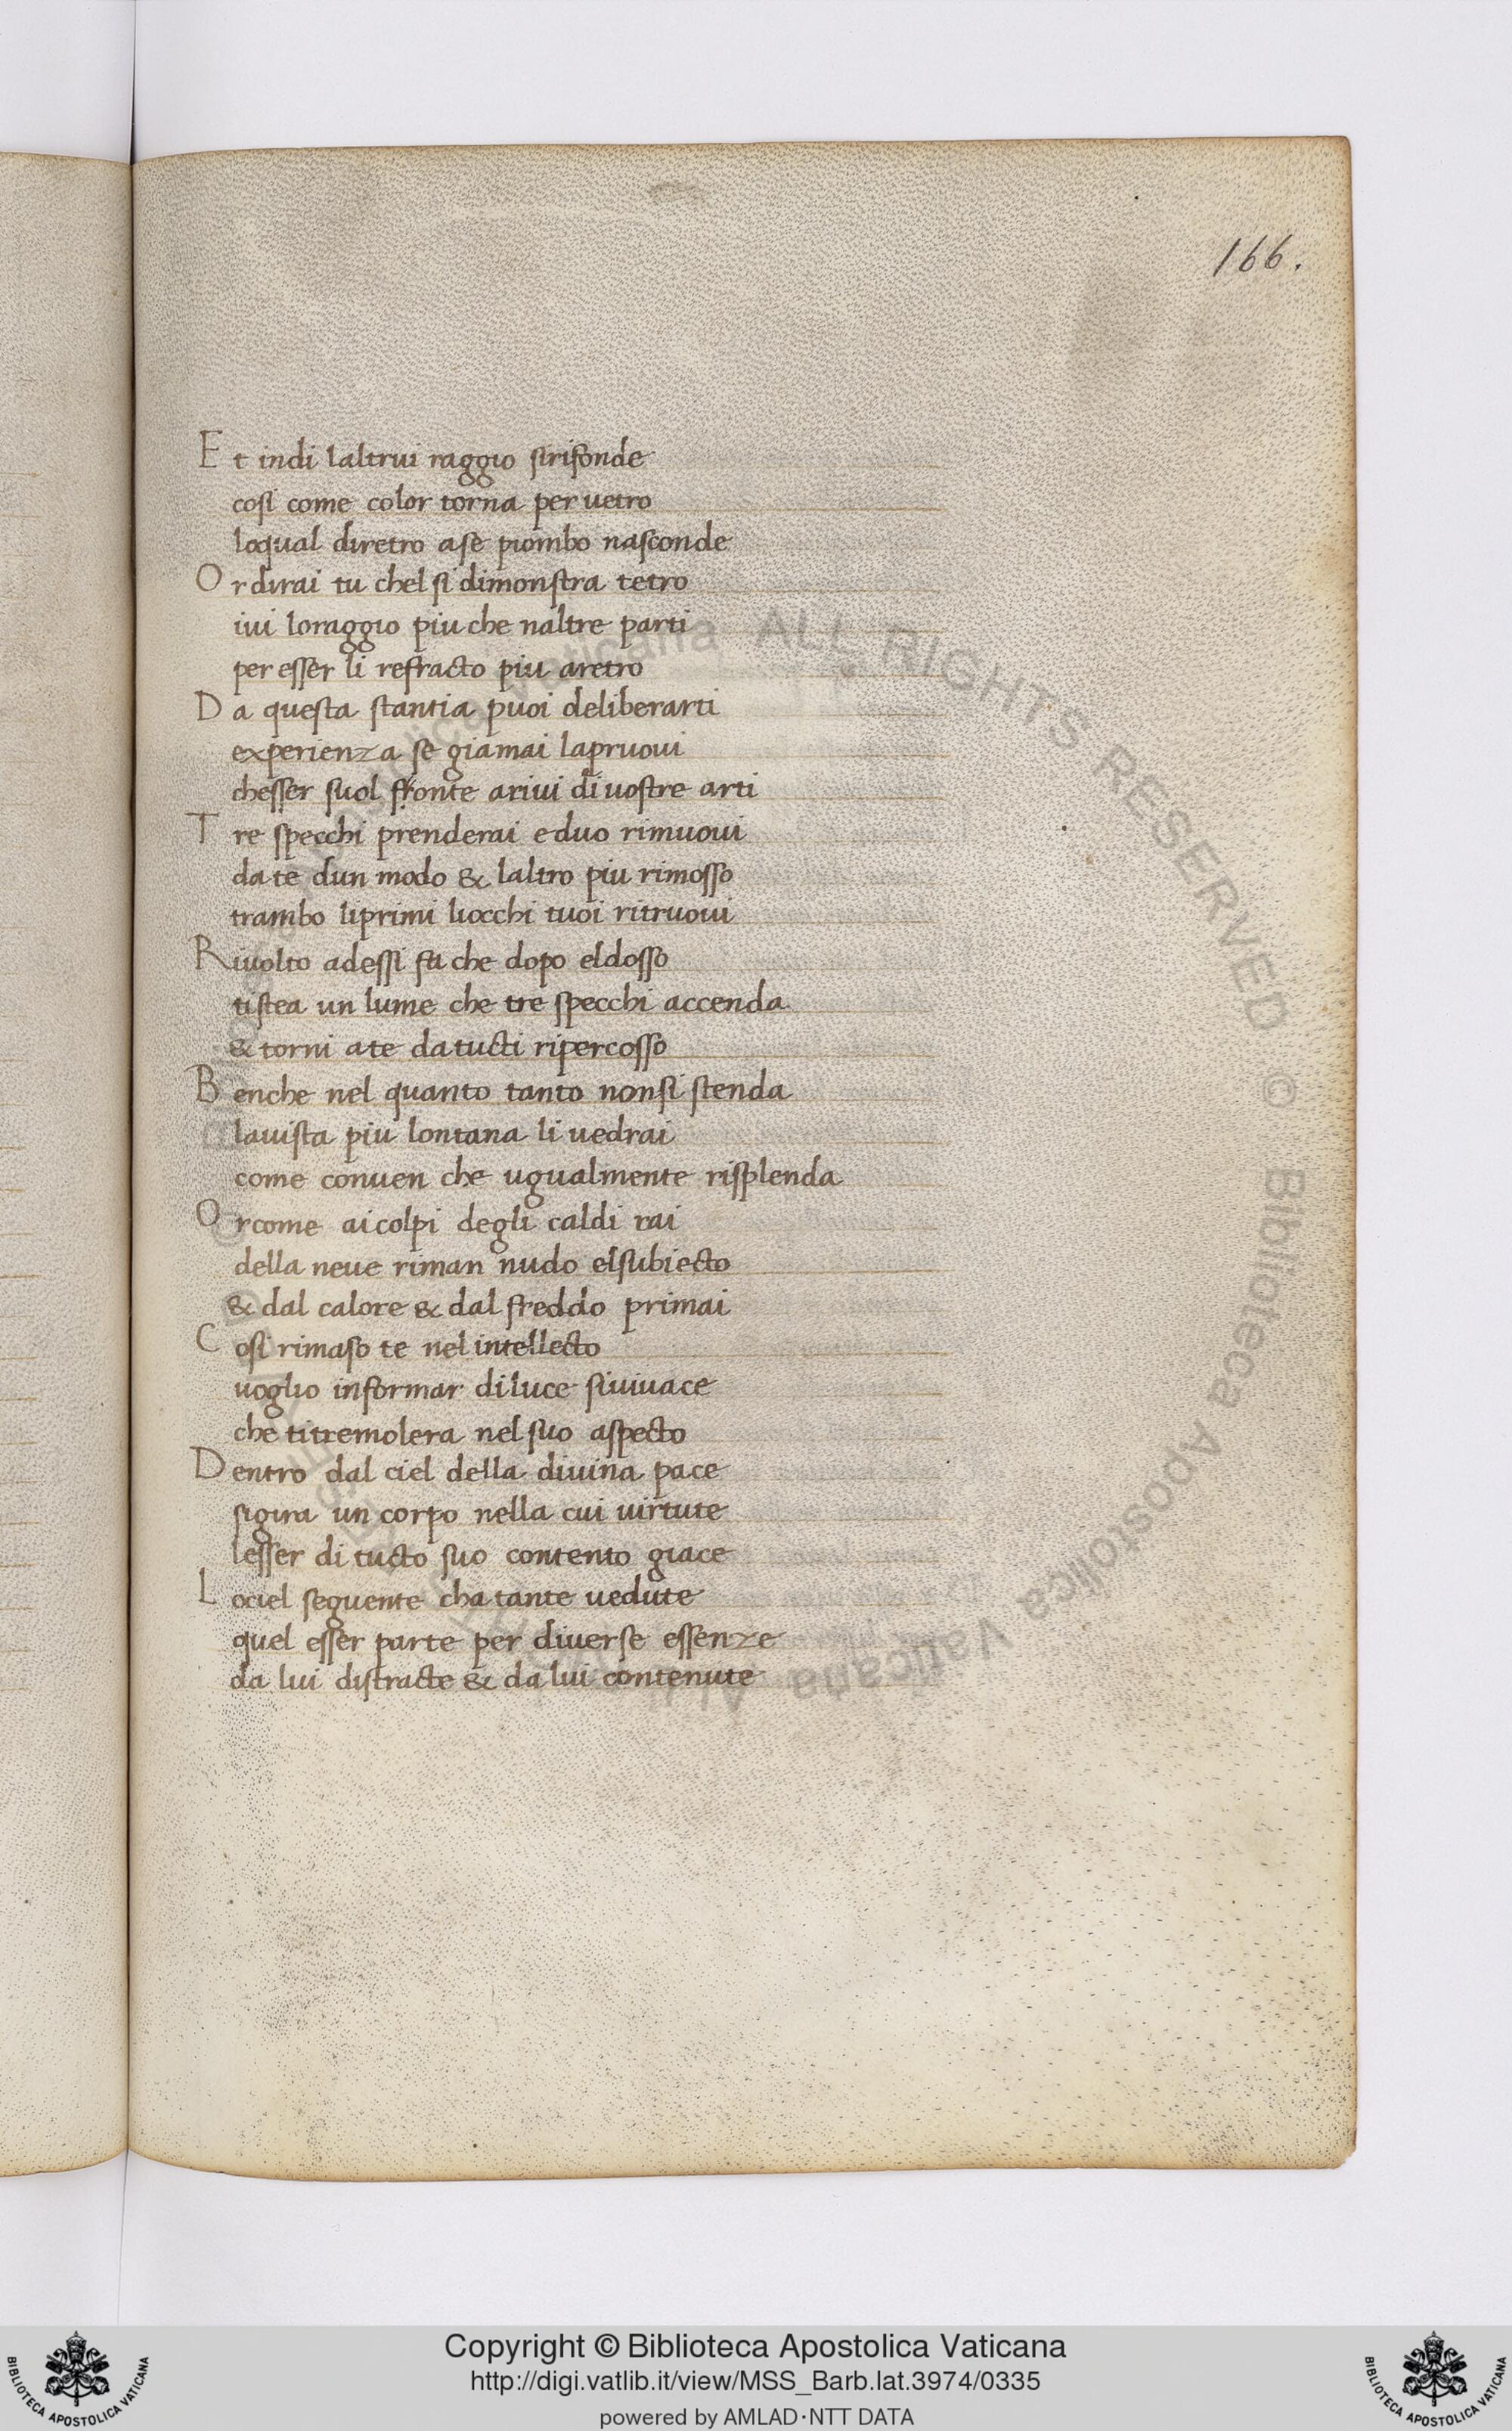 166.
Et indi laltrui raggio sirifonde
cosi come color torna per uetro
loqual diretro ase piombo nasconde
Or dirai tu chel si dimonstra tetro
iui loraggio piu che naltre parti
per esser li refracto piu aretro
Da questa stantia puoi deliberarti
experienza se giamai lapruoui
chesser suol fronte ariui di uostre arti
Tre specchi prenderai e duo rimuoui
da te dun modo & laltro piu rimosso
trambo liprimi liocchi tuoi ritruoui
Riuolto adessi fa che dopo eldosso
tistea un lume che tre specchi accenda
& torni ate datucti ripercosso
Benche nel quanto tanto nonsi stenda
lauista piu lontana li uedrai
come conuen che ugualmente risplenda
Orcome aicolpi degli caldi rai
della neue riman nudo elsubiecto
& dal calore & dal freddo primai
Cosi rimaso te nel intellecto
uoglio informar diluce siuiuace
che titremolera nel suo aspecto
Dentro dal ciel della diuina pace
sigira un corpo nella cui uirtute
lesser di tucto suo contento giace
Lociel seguente cha tante uedute
quel esser parte per diuerse essenze
da lui distracte & da lui contenute
ALL RIGHTS RESERVED © Biblioteca Apostolica Vaticana
Copyright © Biblioteca Apostolica Vaticana
http://digi.vatlib.it/view/MSS_Barb.lat.3974/0335
powered by AMLAD·NTT DATA
BIBLIOTECA APOSTOLICA VATICANA
BIBLIOTECA APOSTOLICA VATICANA